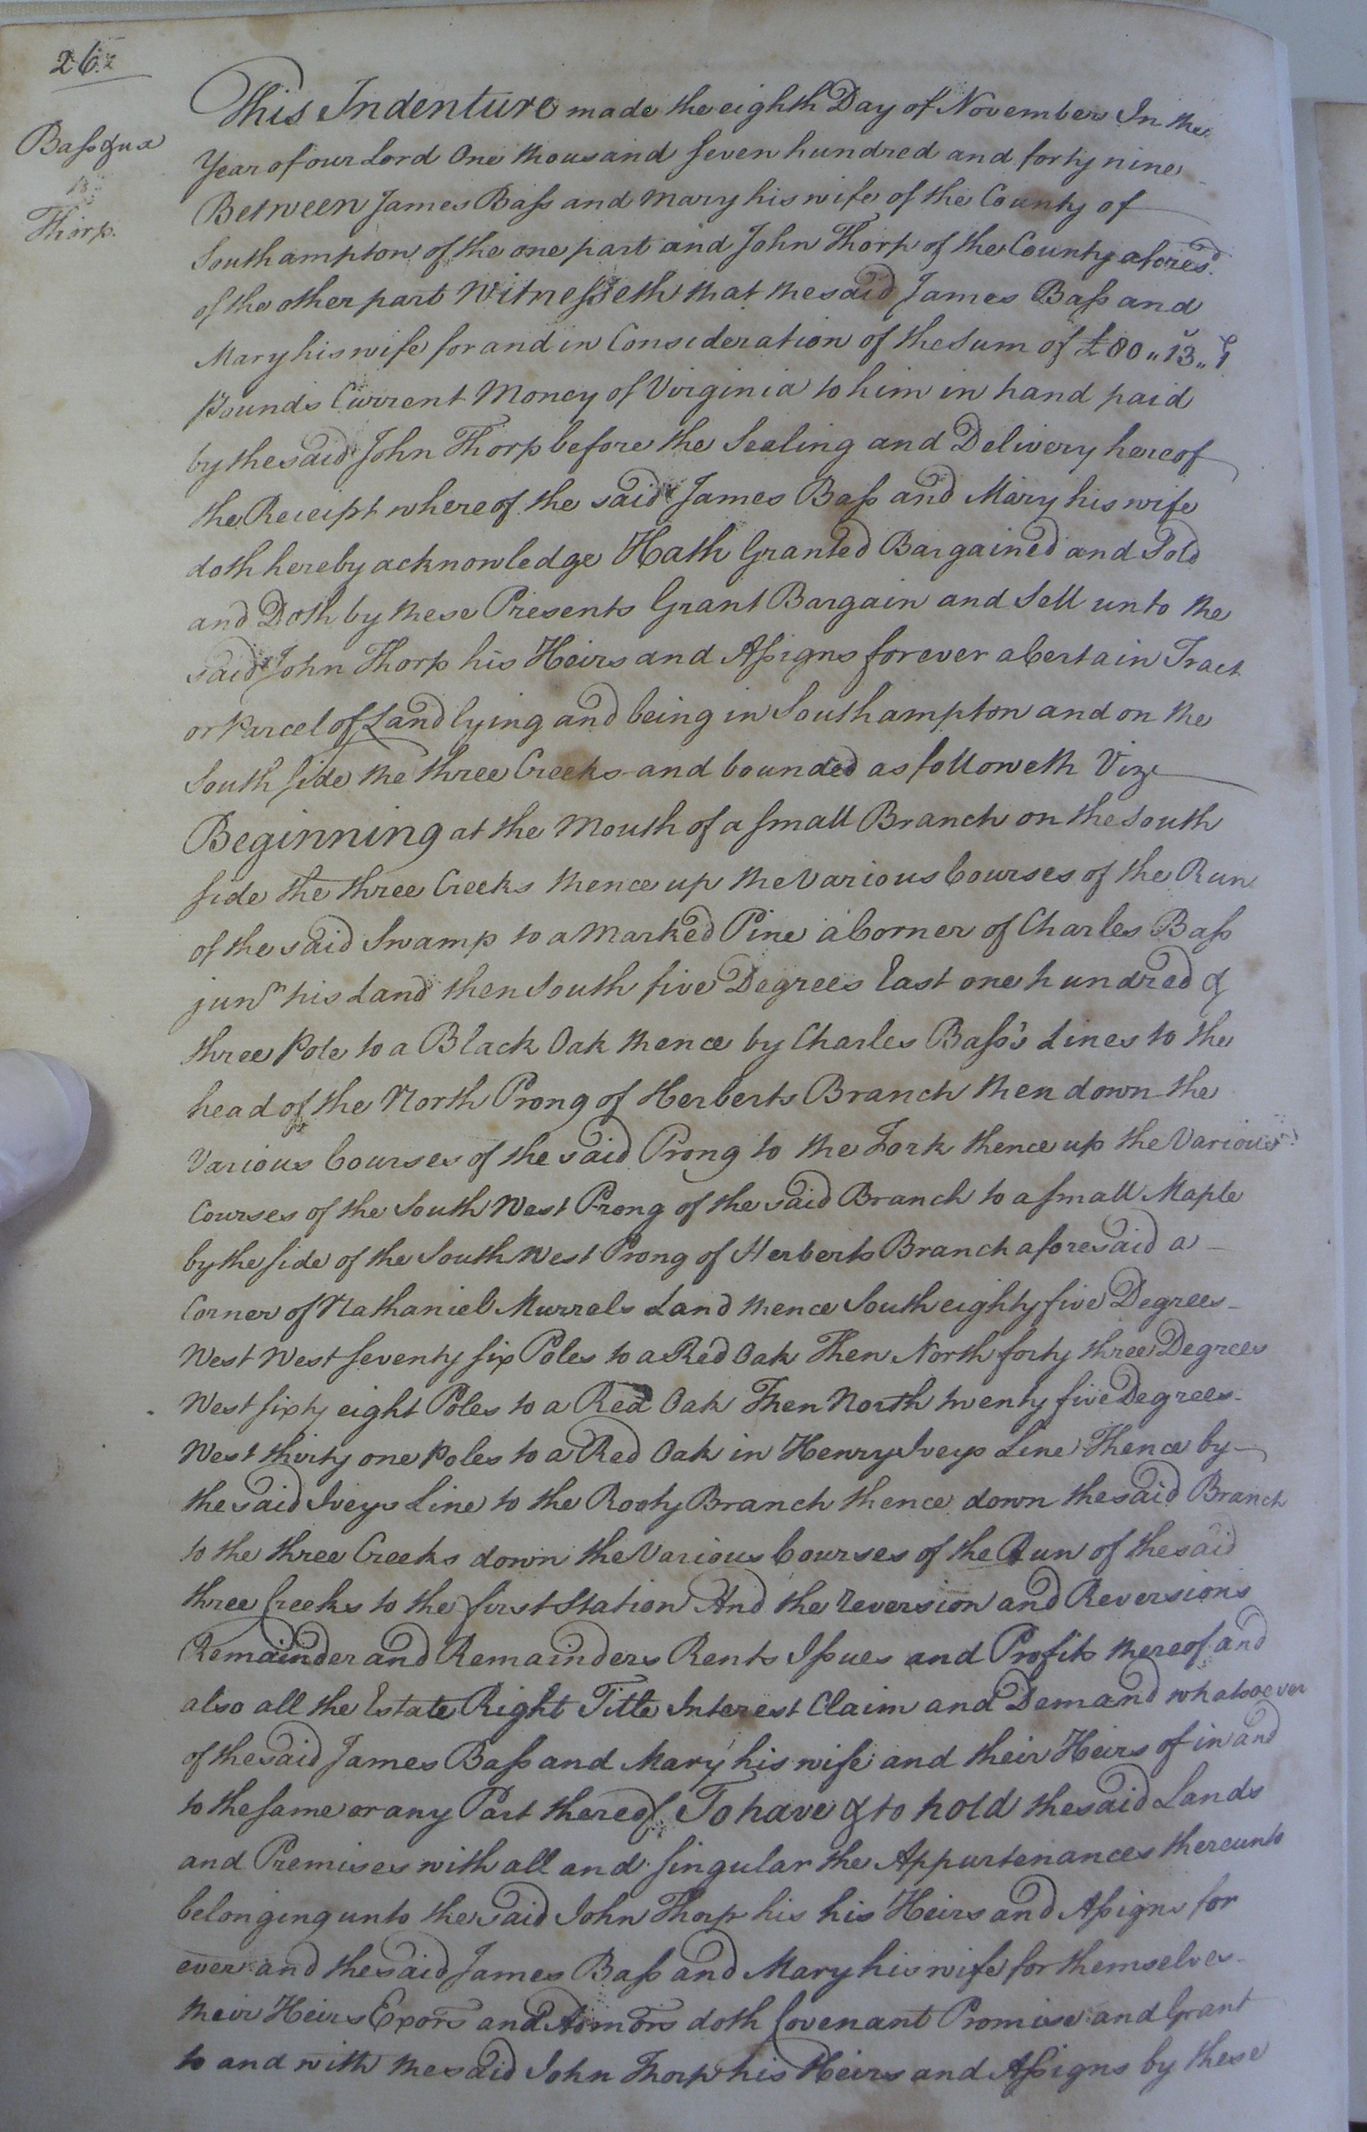 262
Bass & ux
to
Thorp.
This Indenture made the eighth Day of November In the
Year of our Lord One thousand seven hundred and forty nine
Between James Bass and Mary his wife of the County of
Southampton of the one part and John Thorp of the County aforesd.
of the other part Witnesseth that the said James Bass and
Mary his wife for and in Consideration of the Sum of £80,,13,,
Pounds Current Money of Virginia to him in hand paid
by the said John Thorp before the Sealing and Delivery hereof
the Receipt whereof the said James Bass and Mary his wife
doth hereby acknowledge Hath Granted Bargained and Sold
and Doth by these Presents Grant Bargain and Sell unto the
said John Thorp his Heirs and Assigns forever a Certain Tract
or Parcel of Land lying and being in Southampton and on the
South side the three Creeks and bounded as followeth Viz
Beginning at the Mouth of a small Branch on the South
side the three Creeks thence up the Various Courses of the Run
of the said Swamp to a Marked Pine a Corner of Charles Bass
junr. his Land then South five Degrees East one hundred &
three Pole to a Black Oak thence by Charles Bass's Lines to the
head of the North Prong of Herberts Branch then down the
Various Courses of the said Prong to the Fork thence up the Various
Courses of the South West Prong of the said Branch to a small Maple
by the side of the South West Prong of Herberts Branch aforesaid a
Corner of Nathaniel Murrels Land thence South eighty five Degrees
West West seventy six Poles to a Red Oak Then North forty three Degrees
West sixty eight Poles to a Red Oak Then North twenty five Degrees
West thirty one Poles to a Red Oak in Henry Iveys Line Thence by
the said Iveys Line to the Rooty Branch thence down the said Branch
to the three Creeks down the Various Courses of the Run of the said
three Creeks to the first Station And the reversion and Reversions
Remainder and Remainders Rents Issues and Profits thereof and
also all the Estate Right Title Interest Claim and Demand whatsoever
of the said James Bass and Mary his wife and their Heirs of in and
to the same or any Part thereof To have & to hold the said Lands
and Premises with all and singular the Appurtenances thereunto
belonging unto the said John Thorp his his Heirs and Assigns for
ever and the said James Bass and Mary his wife for themselves
their Heirs Exors and Admors doth Covenant Promise and Grant
to and with the said John Thorp his Heirs and Assigns by these